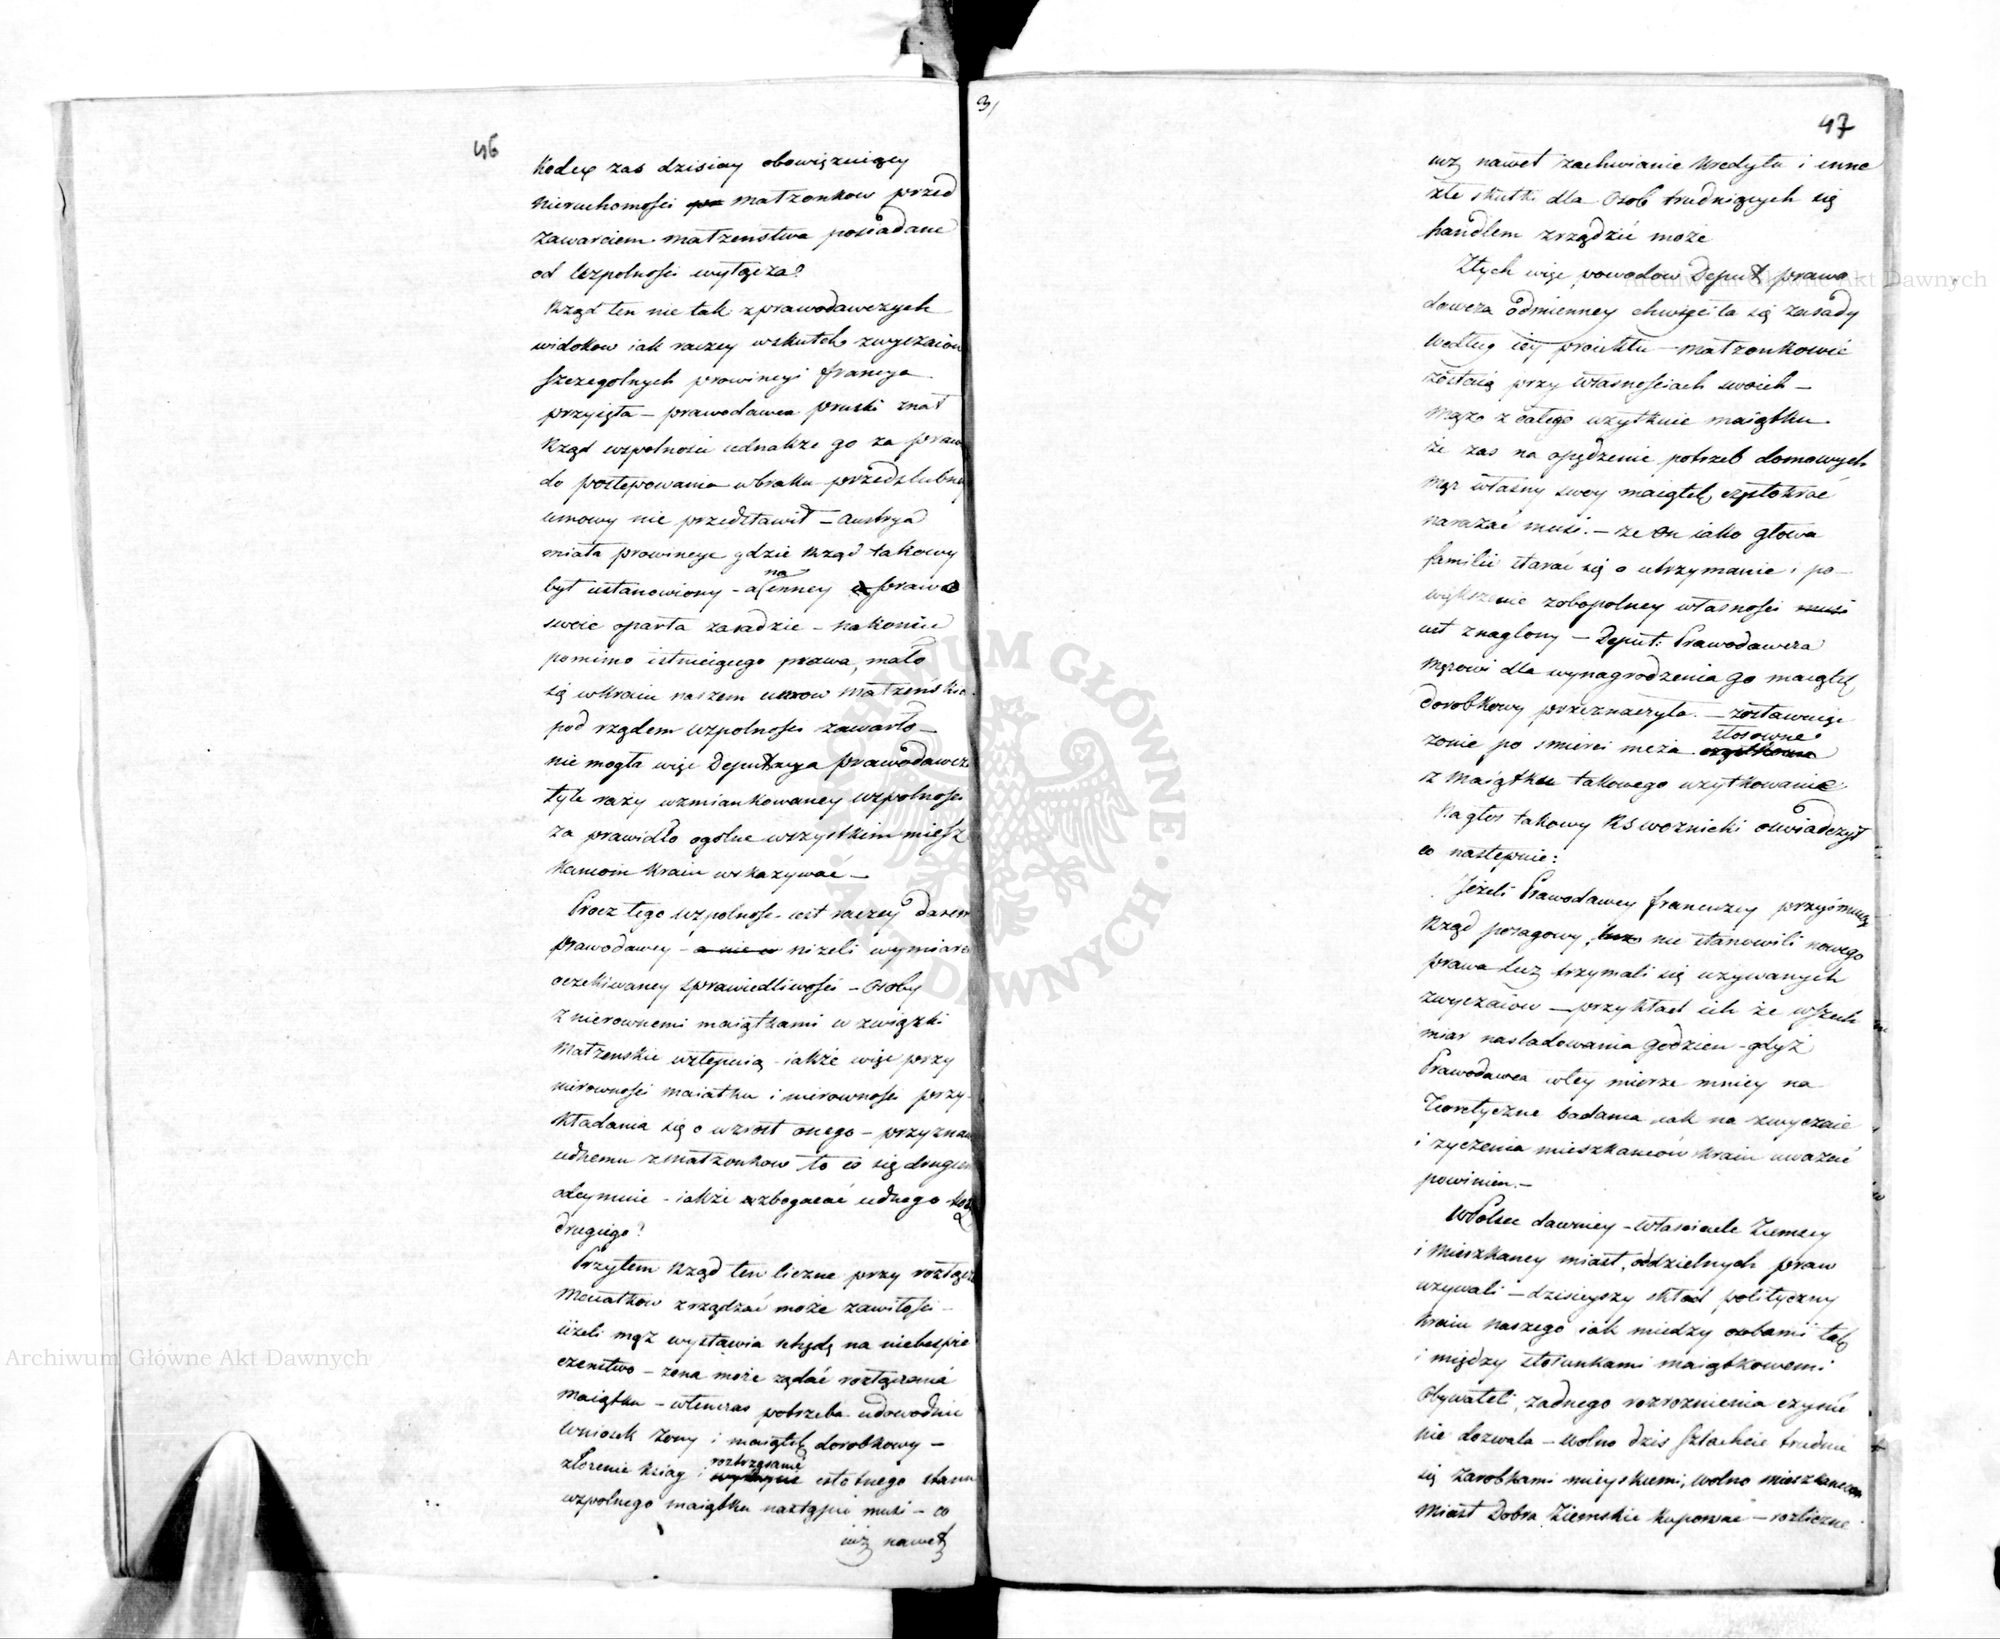 46
Kodex zas dzisiay obowięzuiący
Nieruchomości małzonkow przed
zawarciem małzenstwa posiadane
od wzpolności wyłącza.
Rząd ten nie tak z prawodawczych
widokow iak raczey w skutek zwyczaiow
szczegolnych prowincyi francya
przyięła – prawodawca pruski znał
Rząd wzpolności iednakze go za praw
do postępowania w braku przedslubney
umowy nie przedstawił – Austrya
miała prowincye gdzie Rząd takowy
był ustanowiony – a na inney prawo
swoie oparła zasadzie – nakoniec
pomimo istnieiącego prawa, mało
się w kraiu naszem umow małzeńskic
pod rządem wzpolności zawarło –
nie mogła więc Deputacya prawodawcza
tyle razy wzmiankowaney wzpolności
za prawidło ogolne wszystkim miesz
kancom kraiu wskazywać –
Procz tego wzpolność iest raczey darem
prawodawcy – a nie w nizeli wymiarem
oczekiwaney sprawiedliwości – Osoby
z nierownemi maiątkami w związki
Małzenskie wstępuią – iakże więc przy
nierowności maiatku i nierowności przy-
kładania się o wzrost onego – przyznac
iednemu z małzonkow to co się drugiem
odeymuie – iakże wzbogacać iednego kosz
drugiego?
Przytem Rząd ten liczne przy rozłącze
Maiatkow zrządzać może zawiłości –
iżeli mąż wystawia schędę na niebespie
czenstwo – zona może ządać rozłączenia
Maiątku – wtenczas potrzeba udowodnic
wniosek zony i maiątek dorobkowy –
złozenie Ksiag i roztrząsanie istotnego stanu
wzpolnego maiątku nastąpić musi – co
iuż nawet
3/
47
iuż nawet zachwianie kredytu i inne
złe skutki dla osob trudniących się
handlem zrządzić może
Z tych więc powodow Deput prawo
dawcza odmienney chwyciła się zasady
według iey proiektu – małzonkowie
zostaią przy własnościach swoich –
Mąż z całego uzytkuie maiątku.
że zas na opędzenie potrzeb domowych
Mąż własny swoy maiątek częstokroć
narazać musi. – ze on iako głowa
familii starać się o utrzymanie i po-
większenie zobopolney własności musi
iest znaglony – Deput: Prawodawcza
Męzowi dla wynagrodzenia go maiątek
dorobkowy przeznaczyła. – zostawuiąc
zonie po smierci męża stosowne
z Maiątku takowego uzytkowanie
Na głos takowy KS Woznicki oswiadczył
co następuie:
Jeżeli Prawodawcy francuzcy przyimuiąc
Rząd posagowy, lecz nie stanowili nowego
prawa lecz trzymali się uzywanych
zwyczaiow – przykład ich że wszech
miar nasladowania godzien – gdyż
Prawodawca w tey mierze mniey na
Teoretyczne badania iak na zwyczaie
i zyczenia mieszkancow kraiu uważać
powinien. –
W Polsce dawniey – własciciele Ziemscy
i Mieszkancy miast, oddzielnych praw
uzywali – dzisieyszy skład polityczny
kraiu naszego iak miedzy osobami tak
i między stosunkami maiątkowemi
Obywateli, zadnego rozroznienia czynić
nie dozwala – wolno dzis szlachcie trudnić
się Zarobkami mieyskiemi, wolno mieszkancom
Miast Dobra Ziemskie kupować – rozliczne